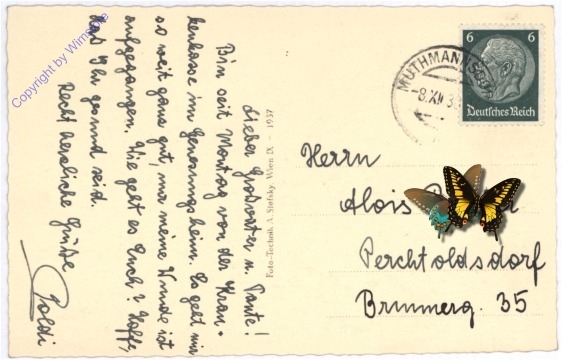 Copyright by Wimsche
Lieber Großvater u. Tante!
Bin seit Montag von der Kran-
kenkasse im Genesungsheim. Es geht mir
so weit ganz gut, nur meine Wunde ist
aufgegangen. Wie geht es Euch? Hoffe,
das Ihr gesund seid.
Recht herzliche Grüße
Poldi
Foto-Technik A. Stefsky, Wien IX - 1937
6 6
Deutsches Reich
MUTHMANNSDORF
-8.XII.3
Herrn
Alois
Perchtoldsdorf
Brunnerg. 35